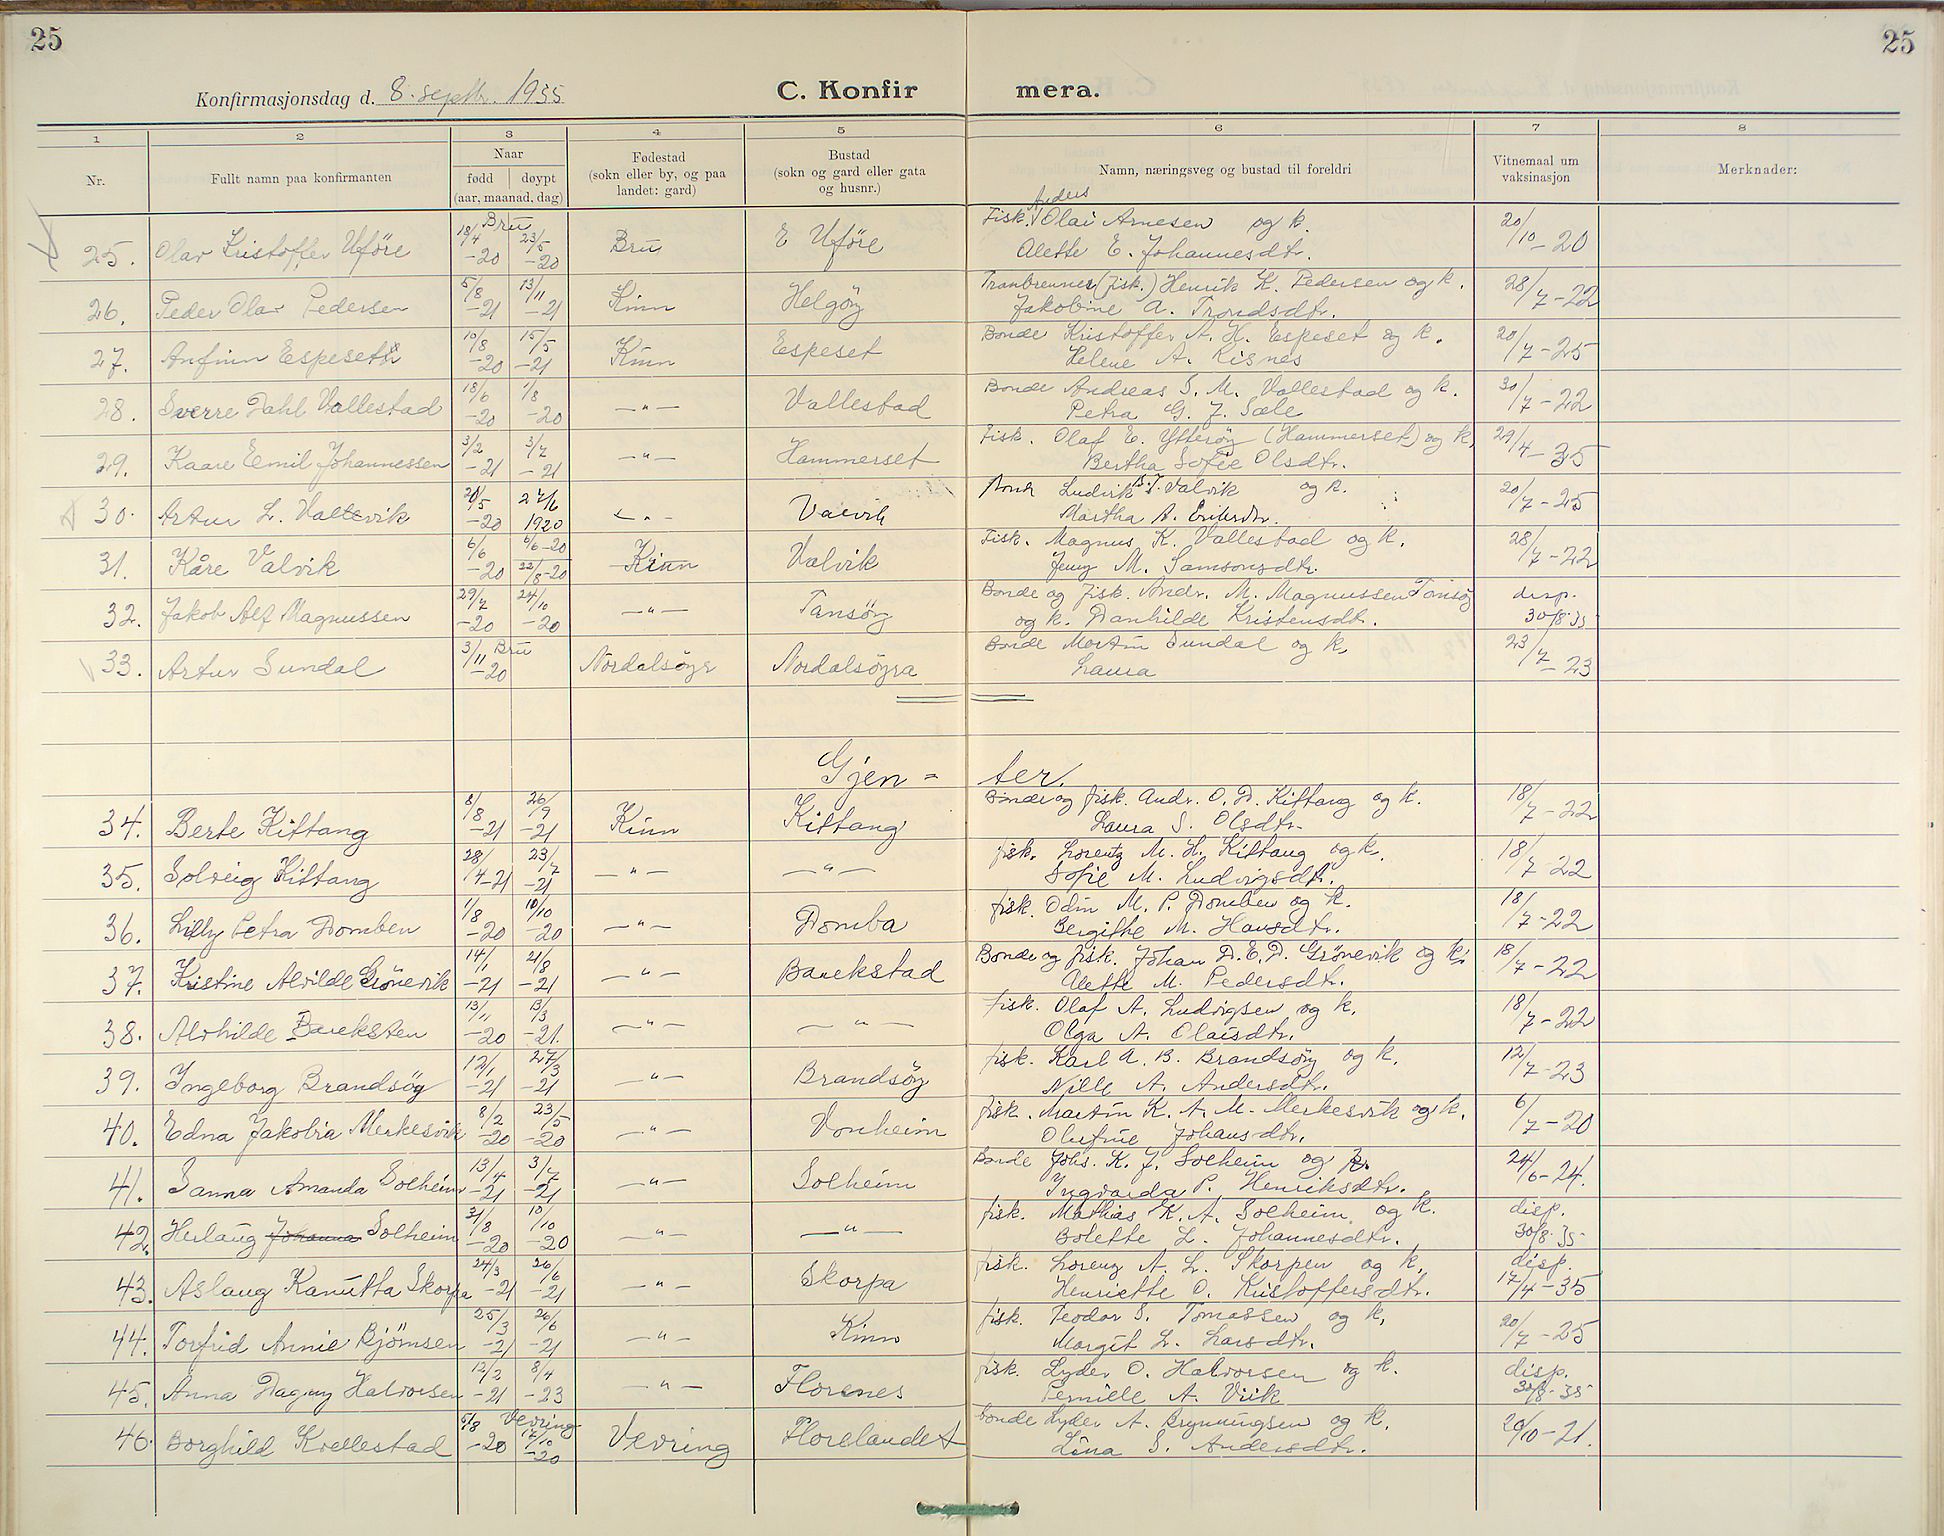 25
25
Konfirmasjonsdag d. 8. septbr. 1935
C. Konfir mera.
1 2 3 4 5 6 7 8
Nr.
Fullt namn paa konfirmanten
Naar
fødd døypt
(aar, maanad, dag)
Fødestad
(sokn eller by, og paa
landet: gard)
Bustad
(sokn og gard eller gata
og husnr.)
Namn, næringsveg og bustad til foreldri
Vitnemaal um
vaksinasjon
Merknader:
25. Olav Kristoffer Uföre 18/4 -20 Bru 23/5 -20 Bru E Uföre Fisk. Anders Olai Arnesen og k. 20/10 -20
Alette E. Johannesdtr.
26. Peder Olav Pedersen 5/8 -21 13/11 -21 Kinn Helgöy Tranbrenner (fisk.) Henrik K. Pedersen og k. 28/7 -22
Jakobine A. Trondsdtr.
27. Anfinn Espeseth 10/8 -20 15/5 -21 Kinn Espeset Bonde Kristoffer A. H. Espeset og k. 20/7 -25
Helene A. Risnes
28. Sverre Dahl Vallestad 18/6 -20 1/8 -20 —"— Vallestad Bonde Andreas S. M. Vallestad og k. 30/7 -22
Petra G. J. Sæle
29. Kaare Emil Johannessen 3/2 -21 3/7 -21 —"— Hammerset Fisk. Olaf E. Ytteröy (Hammerset) og k. 29/4 -35
Bertha Sofie Olsdtr.
30. Artur L. 20/5 -20 27/6 1920 —"— Valvik Bonde Ludvik B. J. Valvik og k. 20/7 -25
Martha A. Eriksdtr.
31. Kåre Valvik 6/6 -20 6/6 -20 22/8 -20 Kinn Valvik Fisk. Magnus K. Vallestad og k. 28/7 -22
Jenny M. Samsonsdtr.
32. Jakob Alf Magnussen 29/7 -20 24/10 -20 —"— Tansöy Bonde og fisk. Andr. M. Magnussen Tansöy disp.
og k. Danhilde Kristensdtr. 30/8-35
33. Artur Sundal 3/11 -20 Bru Nordalsöyr Nordalsöyra Bonde Martin Sundal og k. 23/7 -23
Laura
Gjen = ter.
34. Berte Kittang 8/8 -21 26/9 -21 Kinn Kittang Bonde og fisk. Andr. O. D. Kittang og k. 18/7 -22
Laura S. Olsdtr.
35. Solveig Kittang 28/4 -21 23/7 -21 —"— —"— fisk. Lorentz M. H. Kittang og k. 18/7 -22
Sofie M. Ludvigsdtr.
36. Lilly Petra Domben 1/8 -20 10/10 -20 —"— Domba fisk. Odin M. P. Domben og k. 18/7 -22
Bergithe M. Hansdtr.
37. Kristine Alvilde Grönevik 14/1 -21 21/8 -21 —"— Barekstad Bonde og fisk. Johan D. E. D. Grönevik og k. 18/7 -22
Alette M. Pedersdtr.
38. Alvhilde Bareksten 13/11 -20 13/3 -21. —"— —"— fisk. Olaf A. Ludvigsen og k. 18/7 -22
Olga A. Olaisdtr.
39. Ingeborg Brandsöy 12/1 -21 27/3 -21 —"— Brandsöy fisk. Karl A. B. Brandsöy og k. 12/7 -23
Nille A. Andersdtr.
40. Edna Jakobia Merkesvik 8/2 -20 23/5 -20 —"— Vonheim fisk. Martin K. A. M. Merkesvik og k. 6/7 -20
Olufine Johansdtr.
41. Sanna Amanda Solheim 13/4 -21 3/7 -21 —"— Solheim Bonde Johs. K. J. Solheim og k. 24/6 -24.
Ingvarda P. Henriksdtr.
42. Herlaug Johanna Solheim 31/8 -20 10/10 -20 —"— —"— fisk. Mathias K. A. Solheim og k. disp.
Bolette L. Johannesdtr. 30/8-35
43. Aslaug Kanutta Skorpa 24/3 -21 26/6 -21 —"— Skorpa fisk. Lorenz A. L. Skorpen og k. disp.
Henriette O. Kristoffersdtr. 17/4 -35
44. Torfrid Annie Bjömsen 25/3 -21 26/6 -21 —"— Kinn fisk. Teodor S. Tomassen og k. 20/7 -25
Margit L. Larsdtr.
45. Anna Dagny Halvorsen 12/2 -21 8/4 -23 —"— Florenes fisk. Lyder O. Halvorsen og k. disp.
Pernille A. Vik 30/8-35
46. Borghild Kvellestad 5/8 -20 Vevring 17/10 -20 Vevring Florelandet bonde Lyder A. Brynningsen og k. 20/10 -21.
Lina S. Andersdtr.